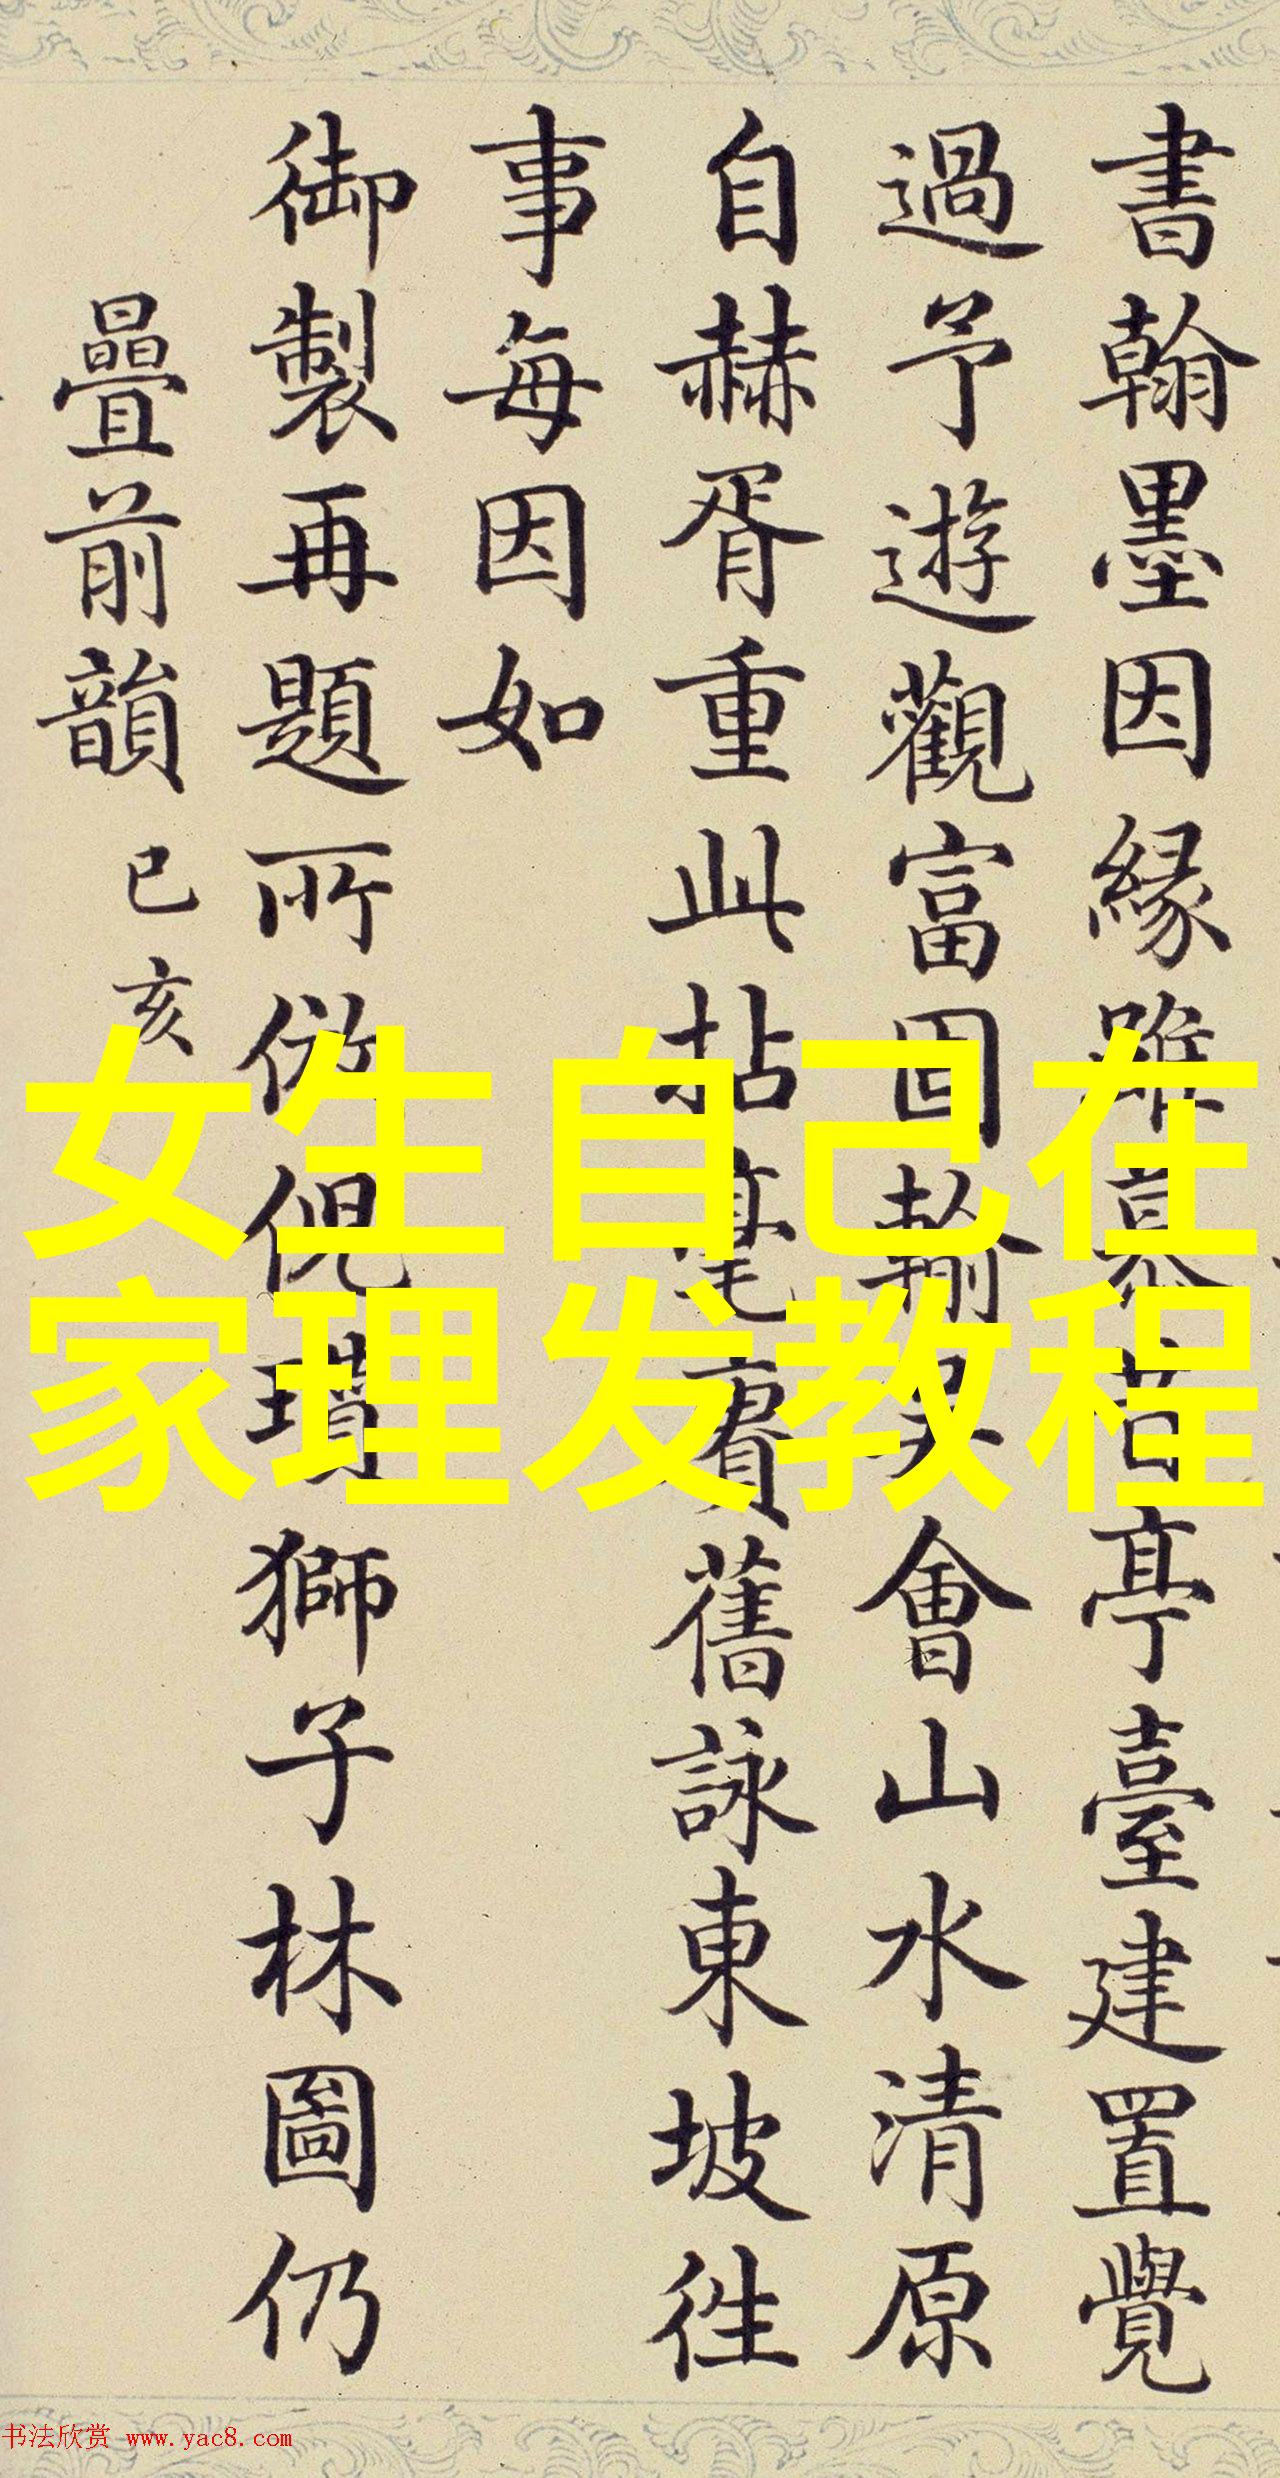 書翰墨因緣雖慕芸亭臺建置覺
過予遊觀富固輸吳會山水清原
自赫胥重此拈毫賡舊詠東坡往
事每因如
御製再題所仿倪瓚獅子林圖仍
疊前韻 己亥
女生自己在
家理发教程
书法欣赏 www.yac8.com